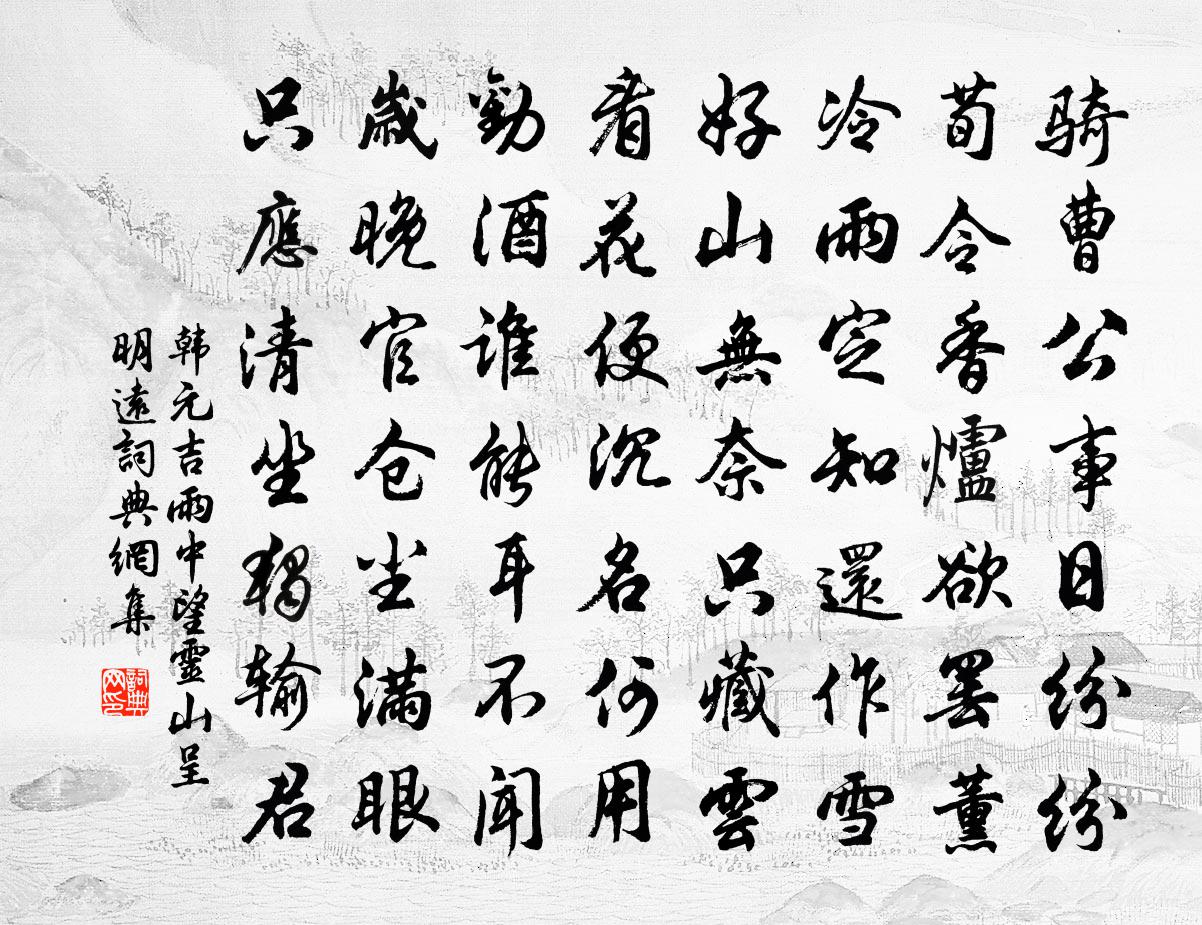 骑曹公事日纷纷
荀令香爐欲罢薰
冷雨定知還作雪
好山無奈只藏雲
看花便沉名何用
勸酒谁能耳不闻
歲晚官仓尘满眼
只應清坐独输君
韩元吉雨中望靈山呈
明遠詞典網集
詞典网印